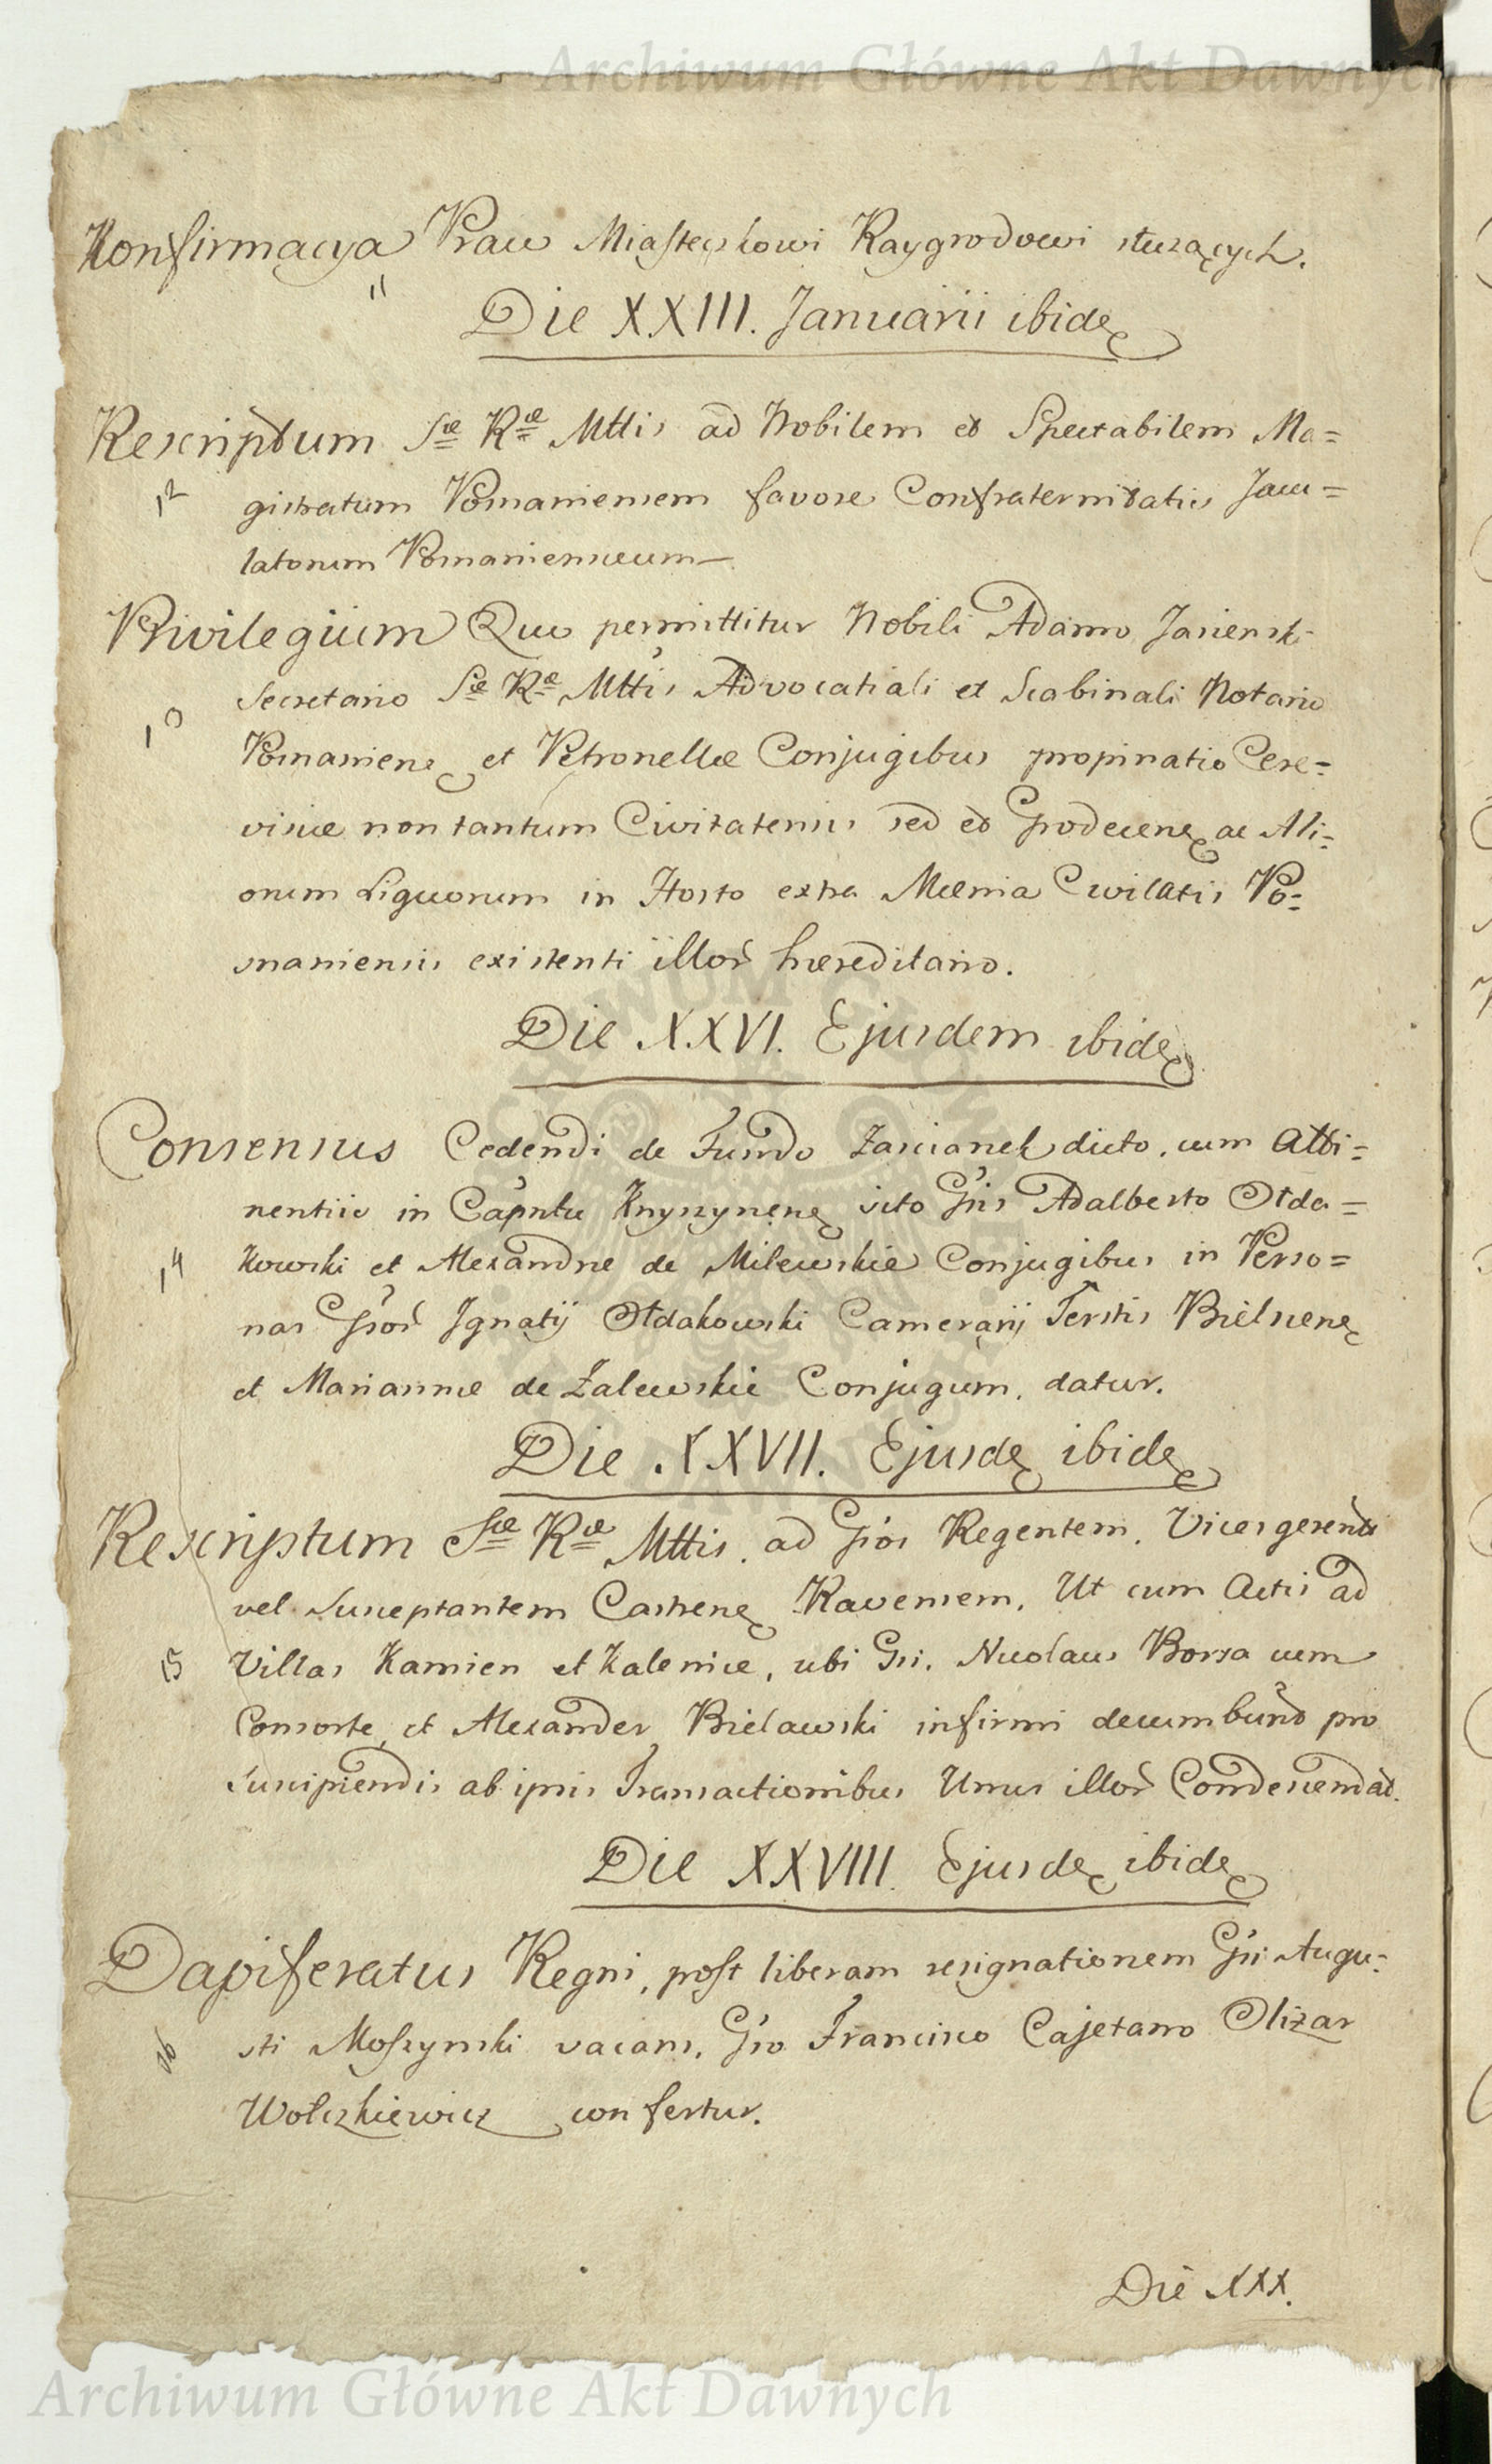 Archiwum Główne Akt Dawnych
Konfirmacya Praw Miasteczkowi Raygrodowi służących.
11
Die XXIII. Januarii ibidę
Rescriptum Sæ Ræ Mttis ad Nobilem et Spectabilem Ma=
12 gistratum Posnaniensem favore Confraternitatis Jacu=
latorum Posnaniensium
Privilegium Quo permittitur Nobili Adamo Jasienski
Secretario Sæ Ræ Mttis Advocatiali et Scabinali Notario
13
Posnaniens et Petronellæ Conjugibus propinatio Cere=
visiæ non tantum Civitatensis sed et Grodecenę ac Ali=
orum Liquorum in Horto extra Mænia Civitatis Po=
snaniensis existenti illor hæreditario.
Die XXVI. Ejusdem ibidę
Consensus Cedendi de Fundo Zascianek dicto, cum Atti=
nentiis in Capntu Knyszynenę sito Gsis Adalberto Ołda=
14 kowski et Alexandræ de Milewskie Conjugibus in Perso=
nas Gsor Ignatij Ołdakowski Camerarij Terstis Bielsenę
et Mariannæ de Zalewskie Conjugum, datur.
Die XXVII. Ejusdę ibidę
Rescriptum Sæ Ræ Mttis. ad Gsos Regentem, Vicesgerentem
vel Susceptantem Castrenę Ravensem, Ut cum Actis ad
15 Villas Kamien et Kalenice, ubi Gsi. Nicolaus Borsa cum
Consorte, et Alexander Bielawski infirmi decumbunt pro
Suscipiendis ab ipsis Transactionibus Unus illor Condescendat.
Die XXVIII Ejusdę ibidę
Dapiferatus Regni, post liberam resignationem Gsi Augu=
16 sti Moszynski vacans, Gso Francisco Cajetano Olizar
Wołczkiewicz confertur.
Die XXX.
Archiwum Główne Akt Dawnych